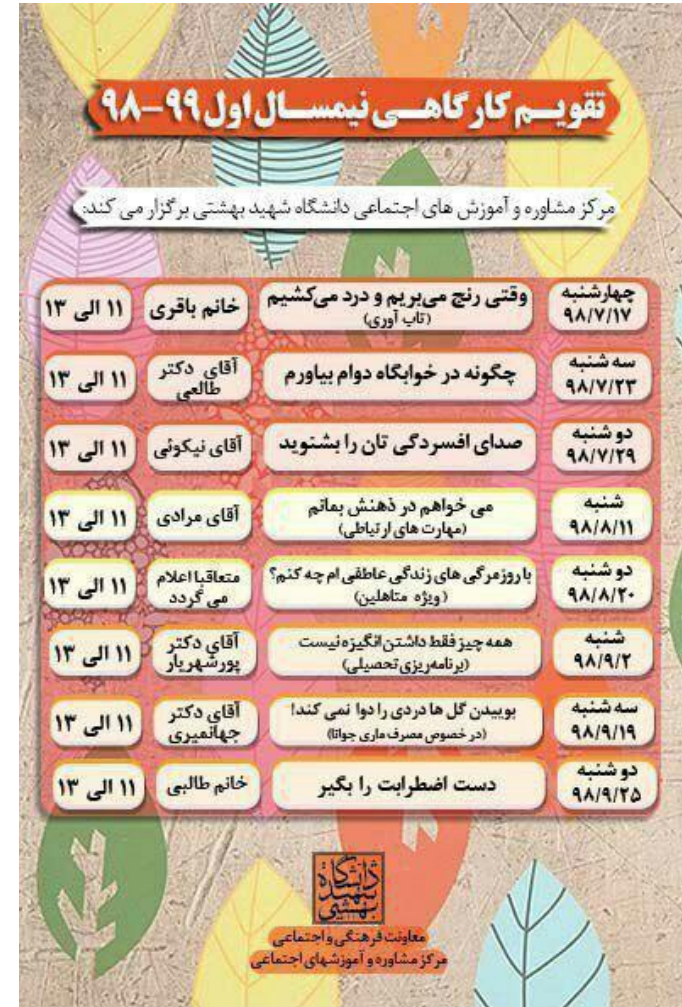 تقویم کارگاهی نیمسال اول ۹۹-۹۸
مرکز مشاوره و آموزش های اجتماعی دانشگاه شهید بهشتی برگزار می کند:
چهارشنبه
۹۸/۷/۱۷
وقتی رنج می‌بریم و درد می‌کشیم
(تاب آوری)
خانم باقری
۱۱ الی ۱۳
سه شنبه
۹۸/۷/۲۳
چگونه در خوابگاه دوام بیاورم
آقای دکتر
طالعی
۱۱ الی ۱۳
دو شنبه
۹۸/۷/۲۹
صدای افسردگی تان را بشنوید
آقای نیکوئی
۱۱ الی ۱۳
شنبه
۹۸/۸/۱۱
می خواهم در ذهنش بمانم
(مهارت های ارتباطی)
آقای مرادی
۱۱ الی ۱۳
دو شنبه
۹۸/۸/۲۰
با روزمرگی های زندگی عاطفی ام چه کنم؟
(ویژه متاهلین)
متعاقبا اعلام
می گردد
۱۱ الی ۱۳
شنبه
۹۸/۹/۲
همه چیز فقط داشتن انگیزه نیست
(برنامه‌ریزی تحصیلی)
آقای دکتر
پورشهریار
۱۱ الی ۱۳
سه شنبه
۹۸/۹/۱۹
بوییدن گل ها دردی را دوا نمی کند!
(در خصوص مصرف ماری جوانا)
آقای دکتر
جهانمیری
۱۱ الی ۱۳
دو شنبه
۹۸/۹/۲۵
دست اضطرابت را بگیر
خانم طالبی
۱۱ الی ۱۳
دانشگاه
شهید
بهشتی
معاونت فرهنگی و اجتماعی
مرکز مشاوره و آموزشهای اجتماعی